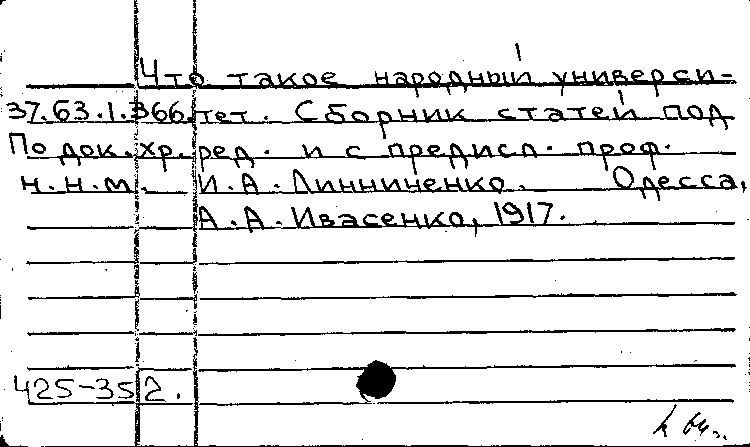 Что такое народный универси-
37.63.1.366. тет. Сборник статей под
По док.хр. ред. и с предисл. проф.
н.н.м. И.А.Линниненко. Одесса,
А.А.Ивасенко, 1917.
425-352.